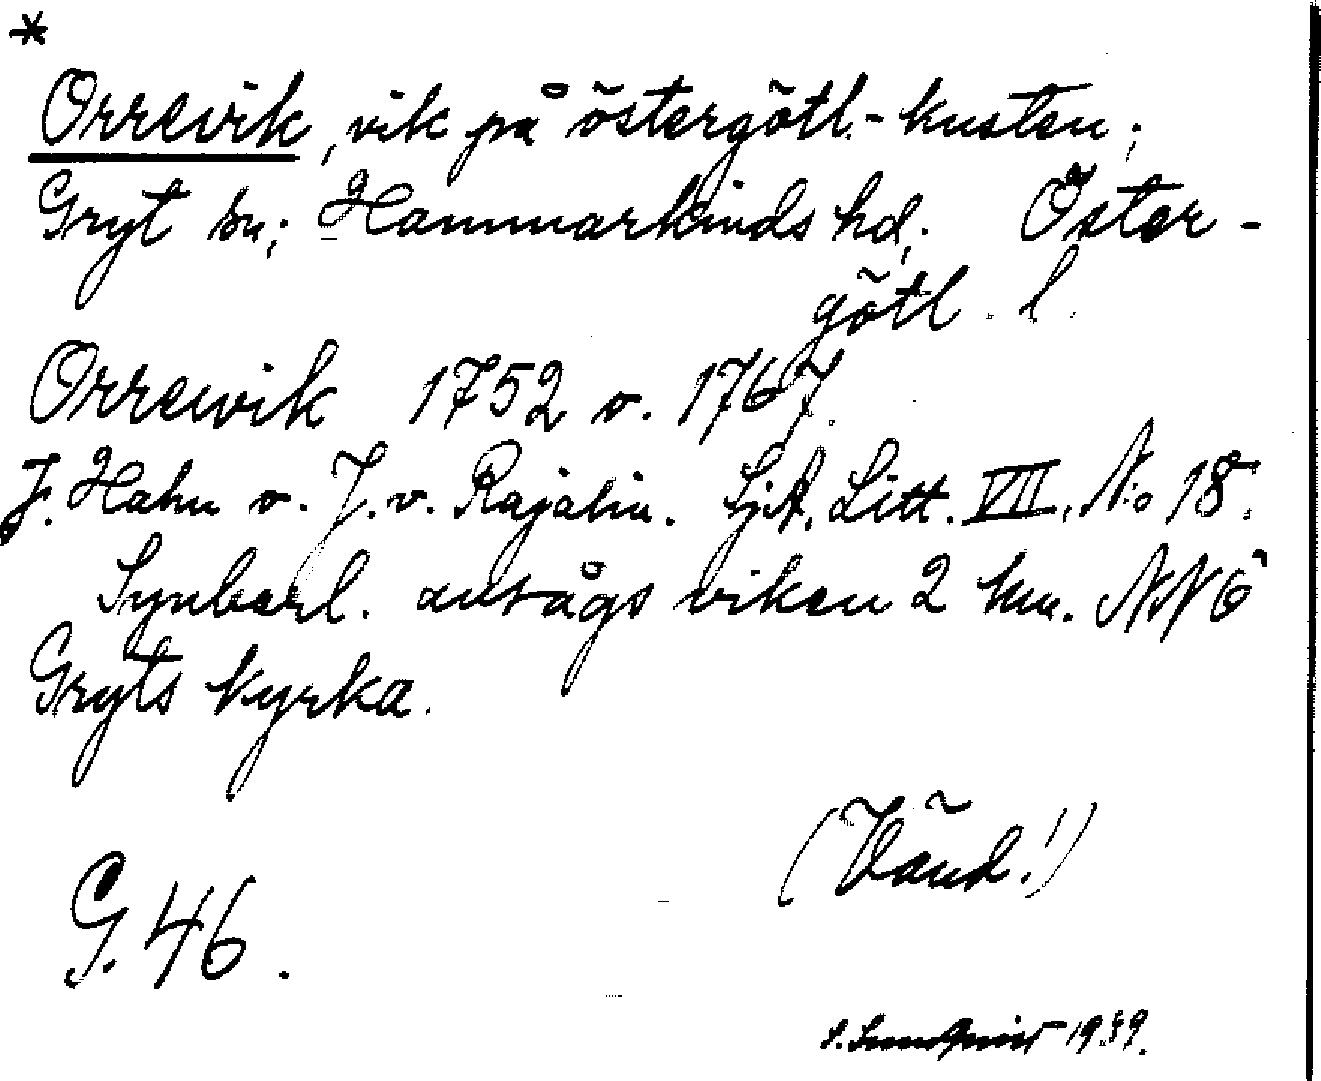 *
Orrevik, vik på östergötl.-kusten;
Gryt sn; Hammarkinds hd; Öster-
götl. l.
Orrewik 1752 o. 1767.
J. Hahn o. J. v. Rajalin. SjA. Litt. VII. No 18.
Synbarl. avsågs viken 2 km. NNÖ
Gryts kyrka.
(Vänd!)
G. 46.
S. Sundqvist 1939.